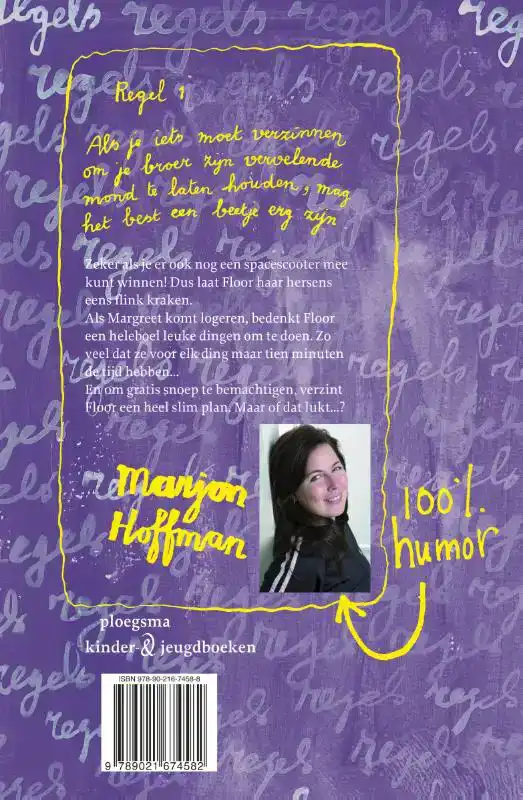 Regel 1
Als je iets moet verzinnen
om je broer zijn vervelende
mond te laten houden, mag
het best een beetje erg zijn
Zeker als je er ook nog een spacescooter mee
kunt winnen! Dus laat Floor haar hersens
eens flink kraken.
Als Margreet komt logeren, bedenkt Floor
een heleboel leuke dingen om te doen. Zo
veel dat ze voor elk ding maar tien minuten
de tijd hebben...
En om gratis snoep te bemachtigen, verzint
Floor een heel slim plan. Maar of dat lukt...?
Marjon
Hoffman
100%
humor
ploegsma
kinder-& jeugdboeken
ISBN 978-90-216-7458-8
9 789021 674582